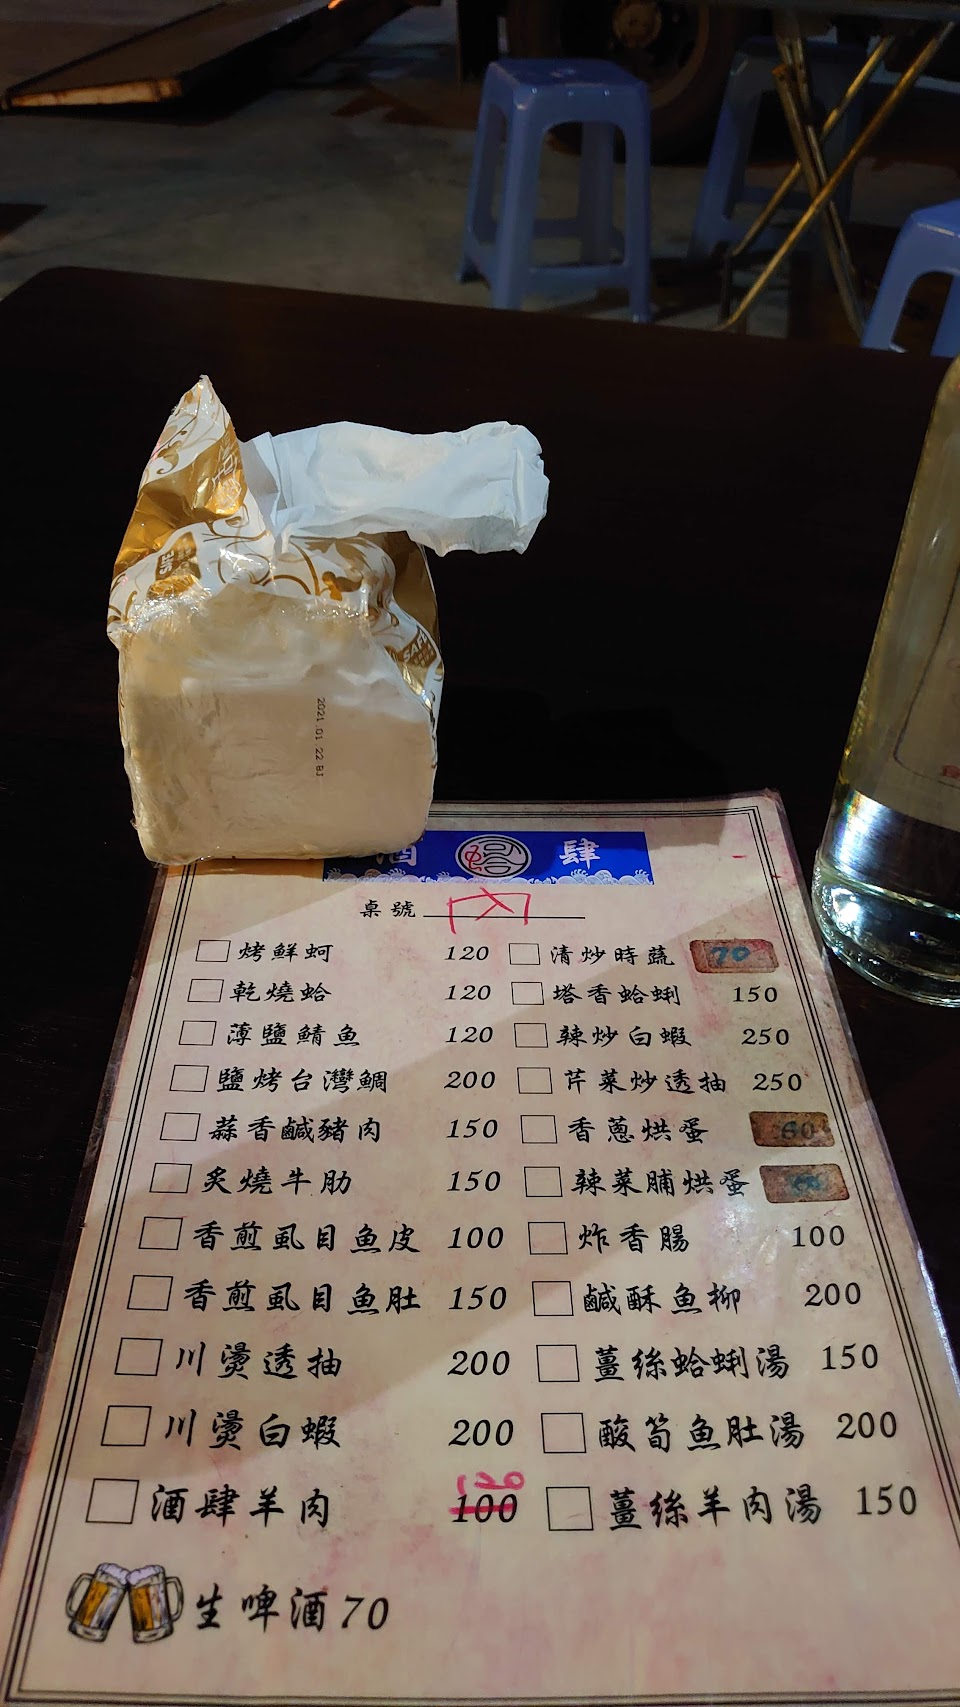 SAFE
2021.01 22 BJ
酒 肆
桌號 内
烤鮮蚵 120
乾燒蛤 120
薄鹽鯖魚 120
鹽烤台灣鯛 200
蒜香鹹豬肉 150
炙燒牛肋 150
香煎虱目魚皮 100
香煎虱目魚肚 150
川燙透抽 200
川燙白蝦 200
酒肆羊肉 100 150
清炒時蔬 70
塔香蛤蜊 150
辣炒白蝦 250
芹菜炒透抽 250
香蔥烘蛋 60
辣菜脯烘蛋
炸香腸 100
鹹酥魚柳 200
薑絲蛤蜊湯 150
酸筍魚肚湯 200
薑絲羊肉湯 150
生啤酒 70